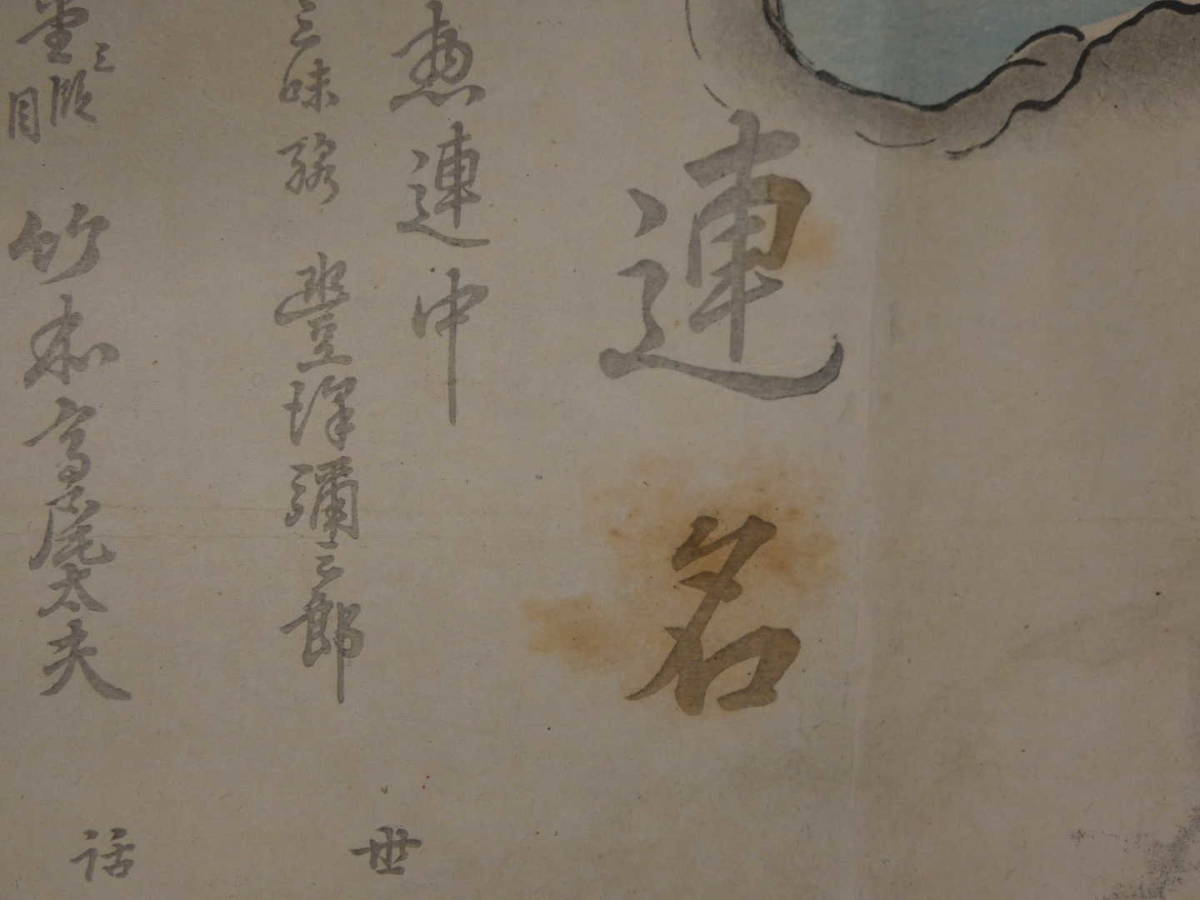 連名
惣連中
三味線 豊澤彌三郎
三段目 竹本高尾太夫
世話